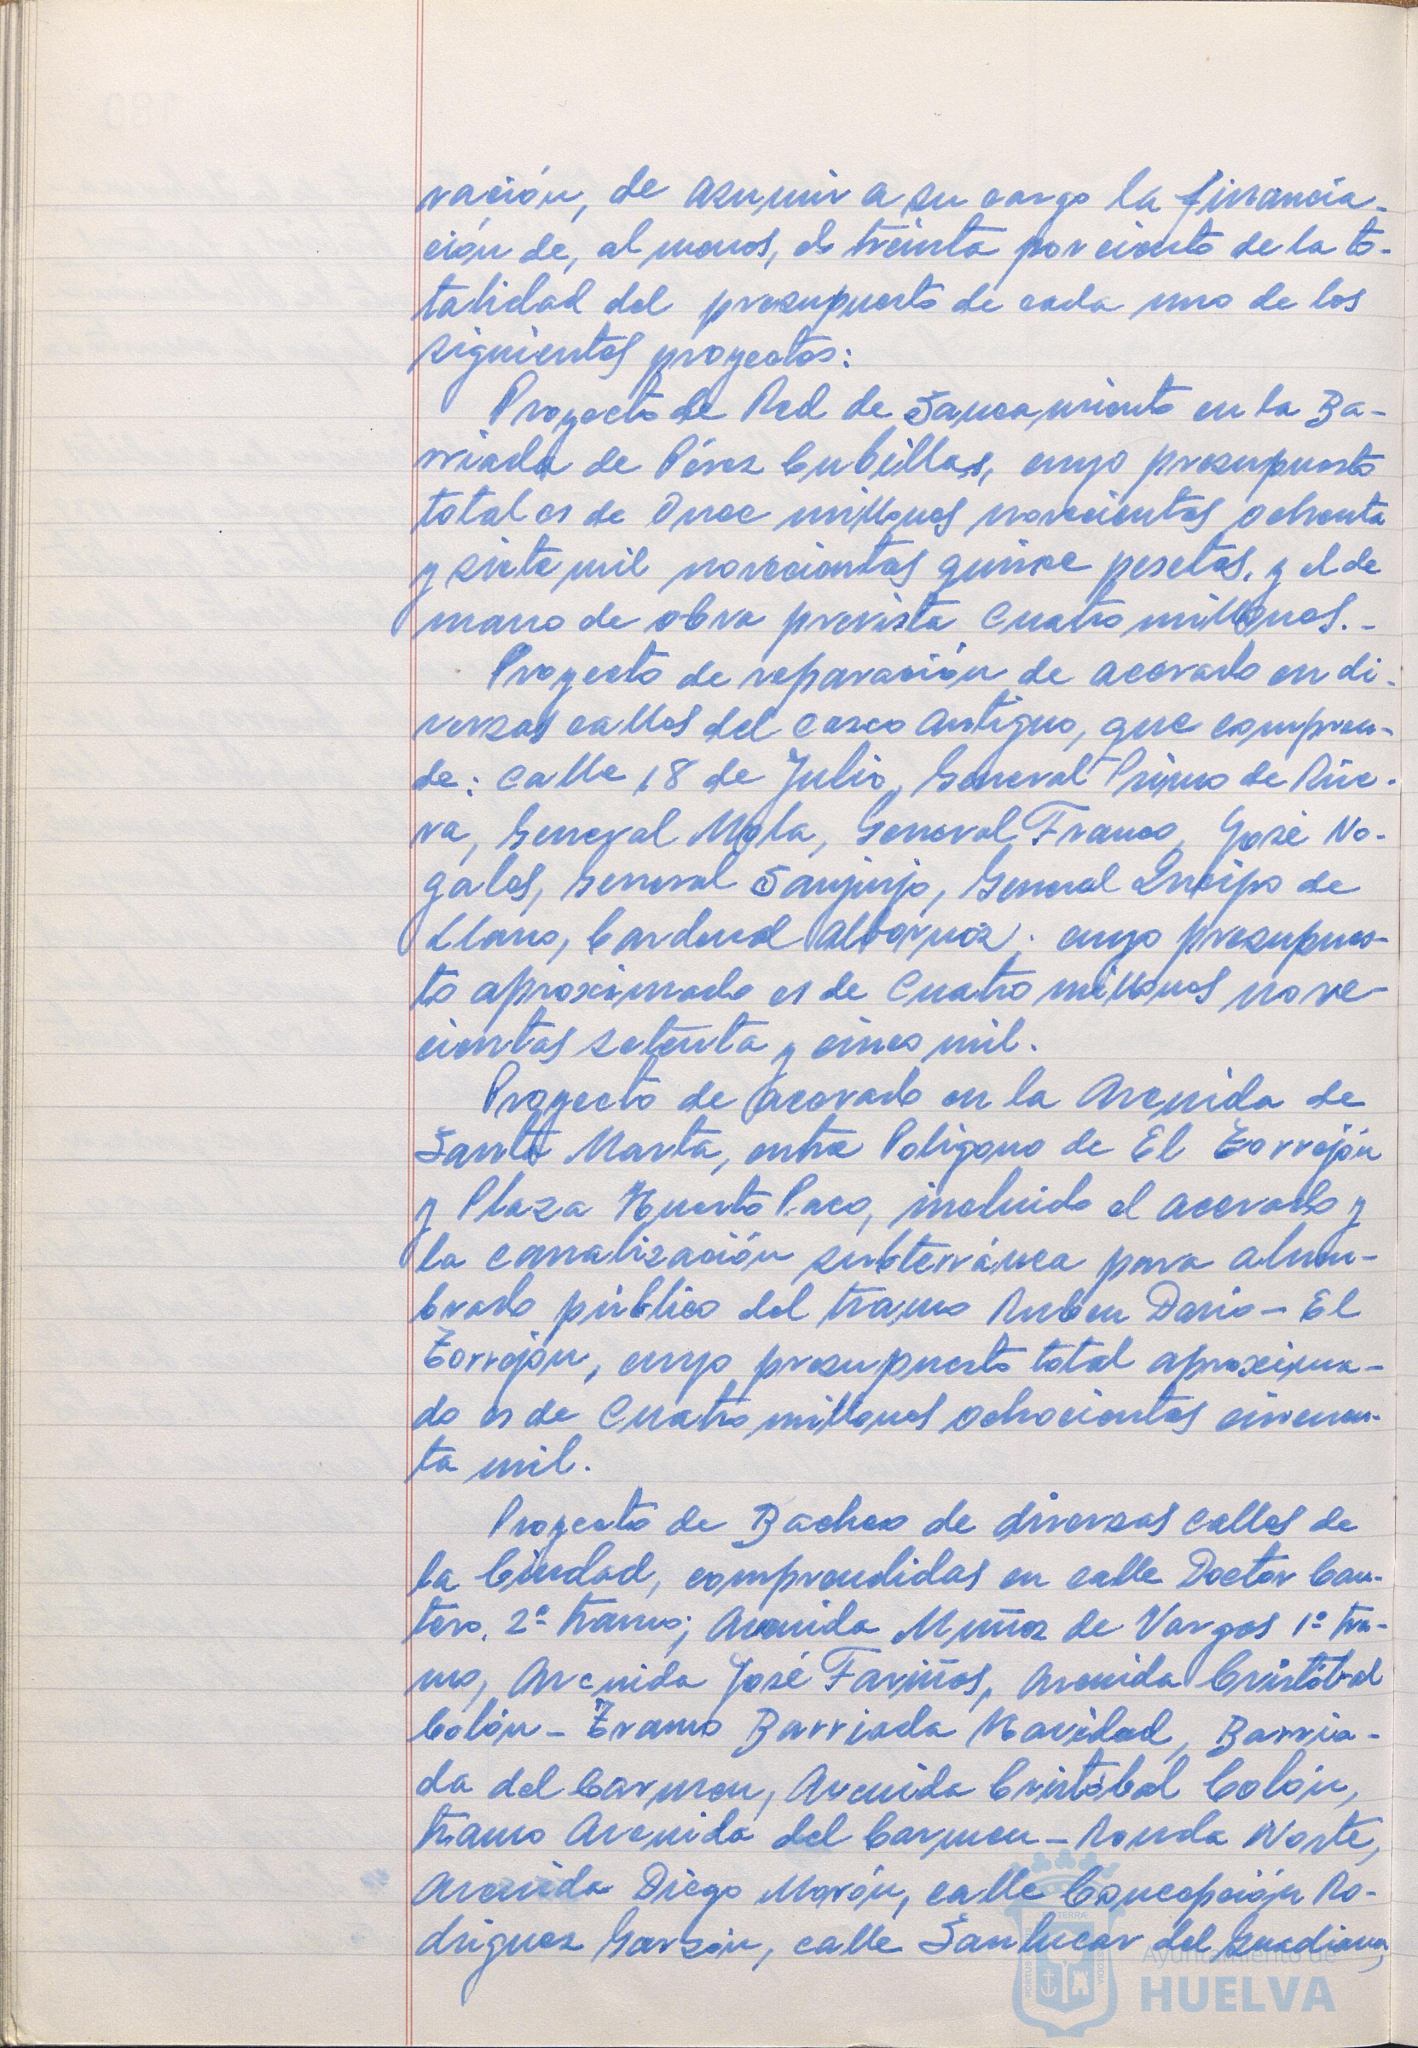 ración, de asumir a su cargo la financia-
ción de, al menos, el treinta por ciento de la to-
talidad del presupuesto de cada uno de los
siguientes proyectos:
Proyecto de Red de Saneamiento en la Ba-
rriada de Pérez Cubillas, cuyo presupuesto
total es de Once millones novecientos ochenta
y siete mil novecientas quince pesetas, y el de
mano de obra prevista Cuatro millones.-
Proyecto de reparación de acerado en di-
versas calles del casco antiguo, que compren-
de: Calle 18 de Julio, General Primo de Rive-
ra, General Mola, General Franco, José No-
gales, General Sanjurjo, General Queipo de
Llano, Cardenal Albornoz; cuyo presupues-
to aproximado es de Cuatro millones nove-
cientas setenta y cinco mil.
Proyecto de acerado en la Avenida de
Santa Marta, entre Polígono de El Torrejón
y Plaza Huerto Paco, incluido el acerado y
la canalización subterránea para alum-
brado público del tramo Ruben Dario - El
Torrejón, cuyo presupuesto total aproxima-
do es de Cuatro millones ochocientas cincuen-
ta mil.
Proyecto de Bacheo de diversas calles de
la Ciudad, comprendidas en calle Doctor Can-
tero, 2º tramo; Avenida Muñoz de Vargas 1º tra-
mo, Avenida José Fariñas, Avenida Cristóbal
Colón - Tramo Barriada Navidad, Barria-
da del Carmen, Avenida Cristóbal Colón,
tramo Avenida del Carmen - Ronda Norte,
Avenida Diego Morón, calle Concepción Ro-
driguez Garzón, calle Sanlucar del Guadiana,
Ayuntamiento de
HUELVA